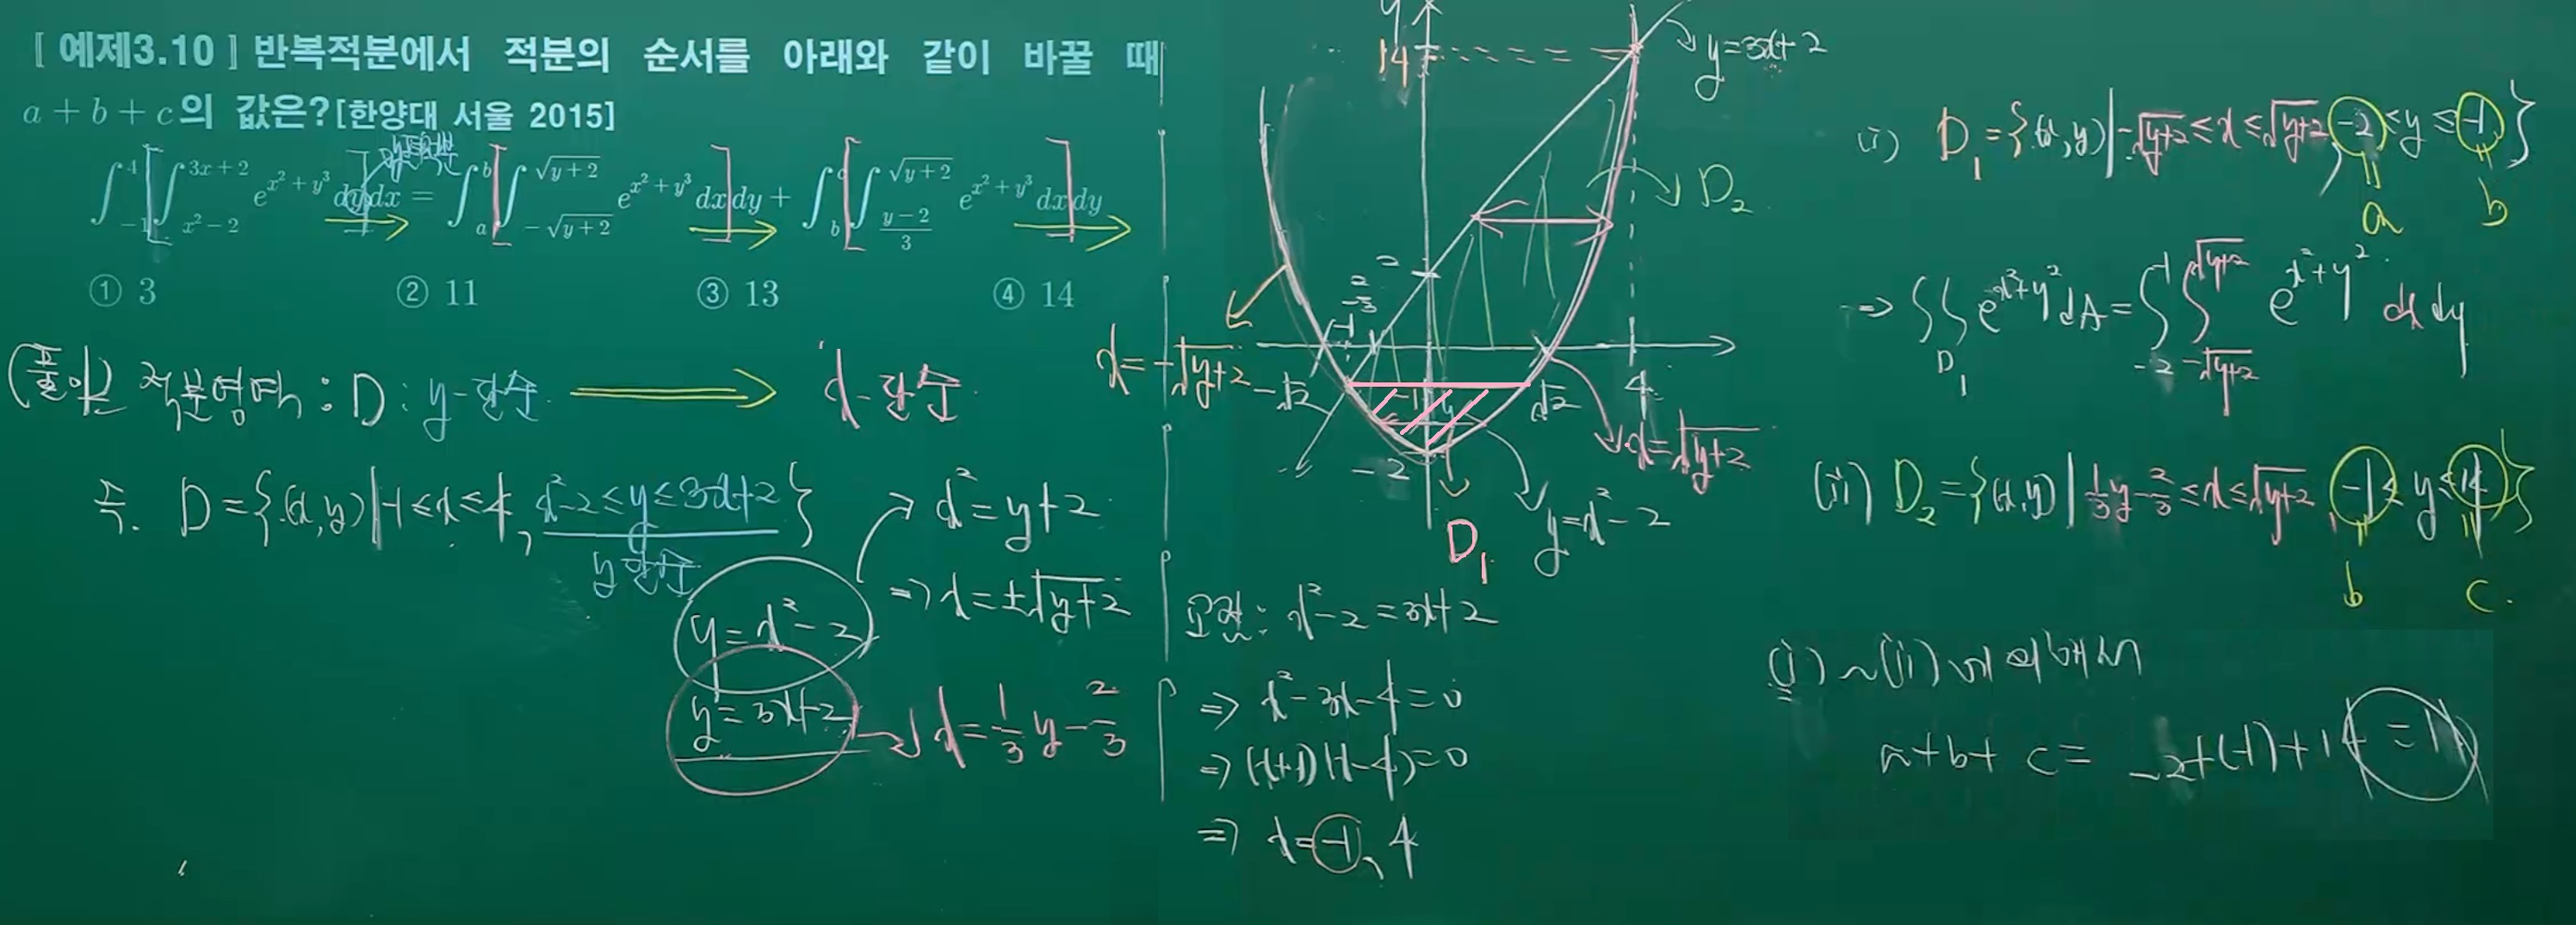 [ 예제3.10 ] 반복적분에서 적분의 순서를 아래와 같이 바꿀 때
a + b + c의 값은?[한양대 서울 2015]
∫_{-1}^{4} ∫_{x²-2}^{3x+2} e^{x²+y³} dydx = ∫_{a}^{b} ∫_{-√(y+2)}^{√(y+2)} e^{x²+y³} dxdy + ∫_{b}^{c} ∫_{(y-2)/3}^{√(y+2)} e^{x²+y³} dxdy
① 3 ② 11 ③ 13 ④ 14
(풀이) 적분영역 : D : y-단순 ⟹ x-단순
즉. D = {(x,y) | -1 ≤ x ≤ 4, x²-2 ≤ y ≤ 3x+2}
y단순
x² = y+2
⇒ x = ±√(y+2)
y = x²-2
y = 3x+2
x = 1/3 y - 2/3
y
14
y=3x+2
D₂
2
-2/3
-1
x = -√(y+2)
-√2
-1
√2
4
x = √(y+2)
-2
D₁
y = x²-2
교점: x²-2 = 3x+2
⇒ x²-3x-4=0
⇒ (x+1)(x-4)=0
⇒ x = -1, 4
(i) D₁ = {(x,y) | -√(y+2) ≤ x ≤ √(y+2), -2 ≤ y ≤ -1}
a b
⇒ ∬_{D₁} e^{x²+y²} dA = ∫_{-2}^{-1} ∫_{-√(y+2)}^{√(y+2)} e^{x²+y²} dx dy
(ii) D₂ = {(x,y) | 1/3 y - 2/3 ≤ x ≤ √(y+2), -1 ≤ y ≤ 14}
b c.
(i) ~ (ii) 에 의해서
a+b+c = -2+(-1)+14 = 11